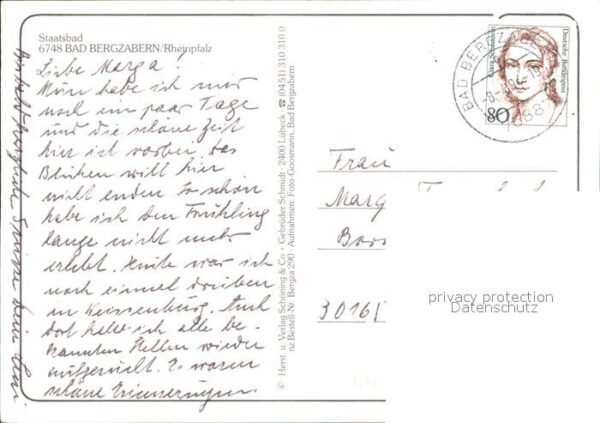 Staatsbad
6748 BAD BERGZABERN/Rheinpfalz
Liebe Marga!
habe ich nur
noch ein paar Tage
und die schöne Zeit
hier ist vorbei das
Blühen will hier
nicht enden So schön
habe ich den Frühling
lange nicht mehr
erlebt. Heute war ich
noch einmal drüben
in Weissenburg. Auch
dort habe ich alle be-
kannten Stellen wieder
aufgesucht. Es waren
schöne Erinnerungen.
© Herst. u. Verlag Schöning & Co · Gebrüder Schmidt · 2400 Lübeck ☎ (0451) 310 310 0
nz Bestell Nr. Bergza 290 · Aufnahmen: Foto Goosmann, Bad Bergzabern
Clara Schumann
Deutsche Bundespost
80
BAD BERGZABERN
6748
Frau
Marg
3016
privacy protection
Datenschutz